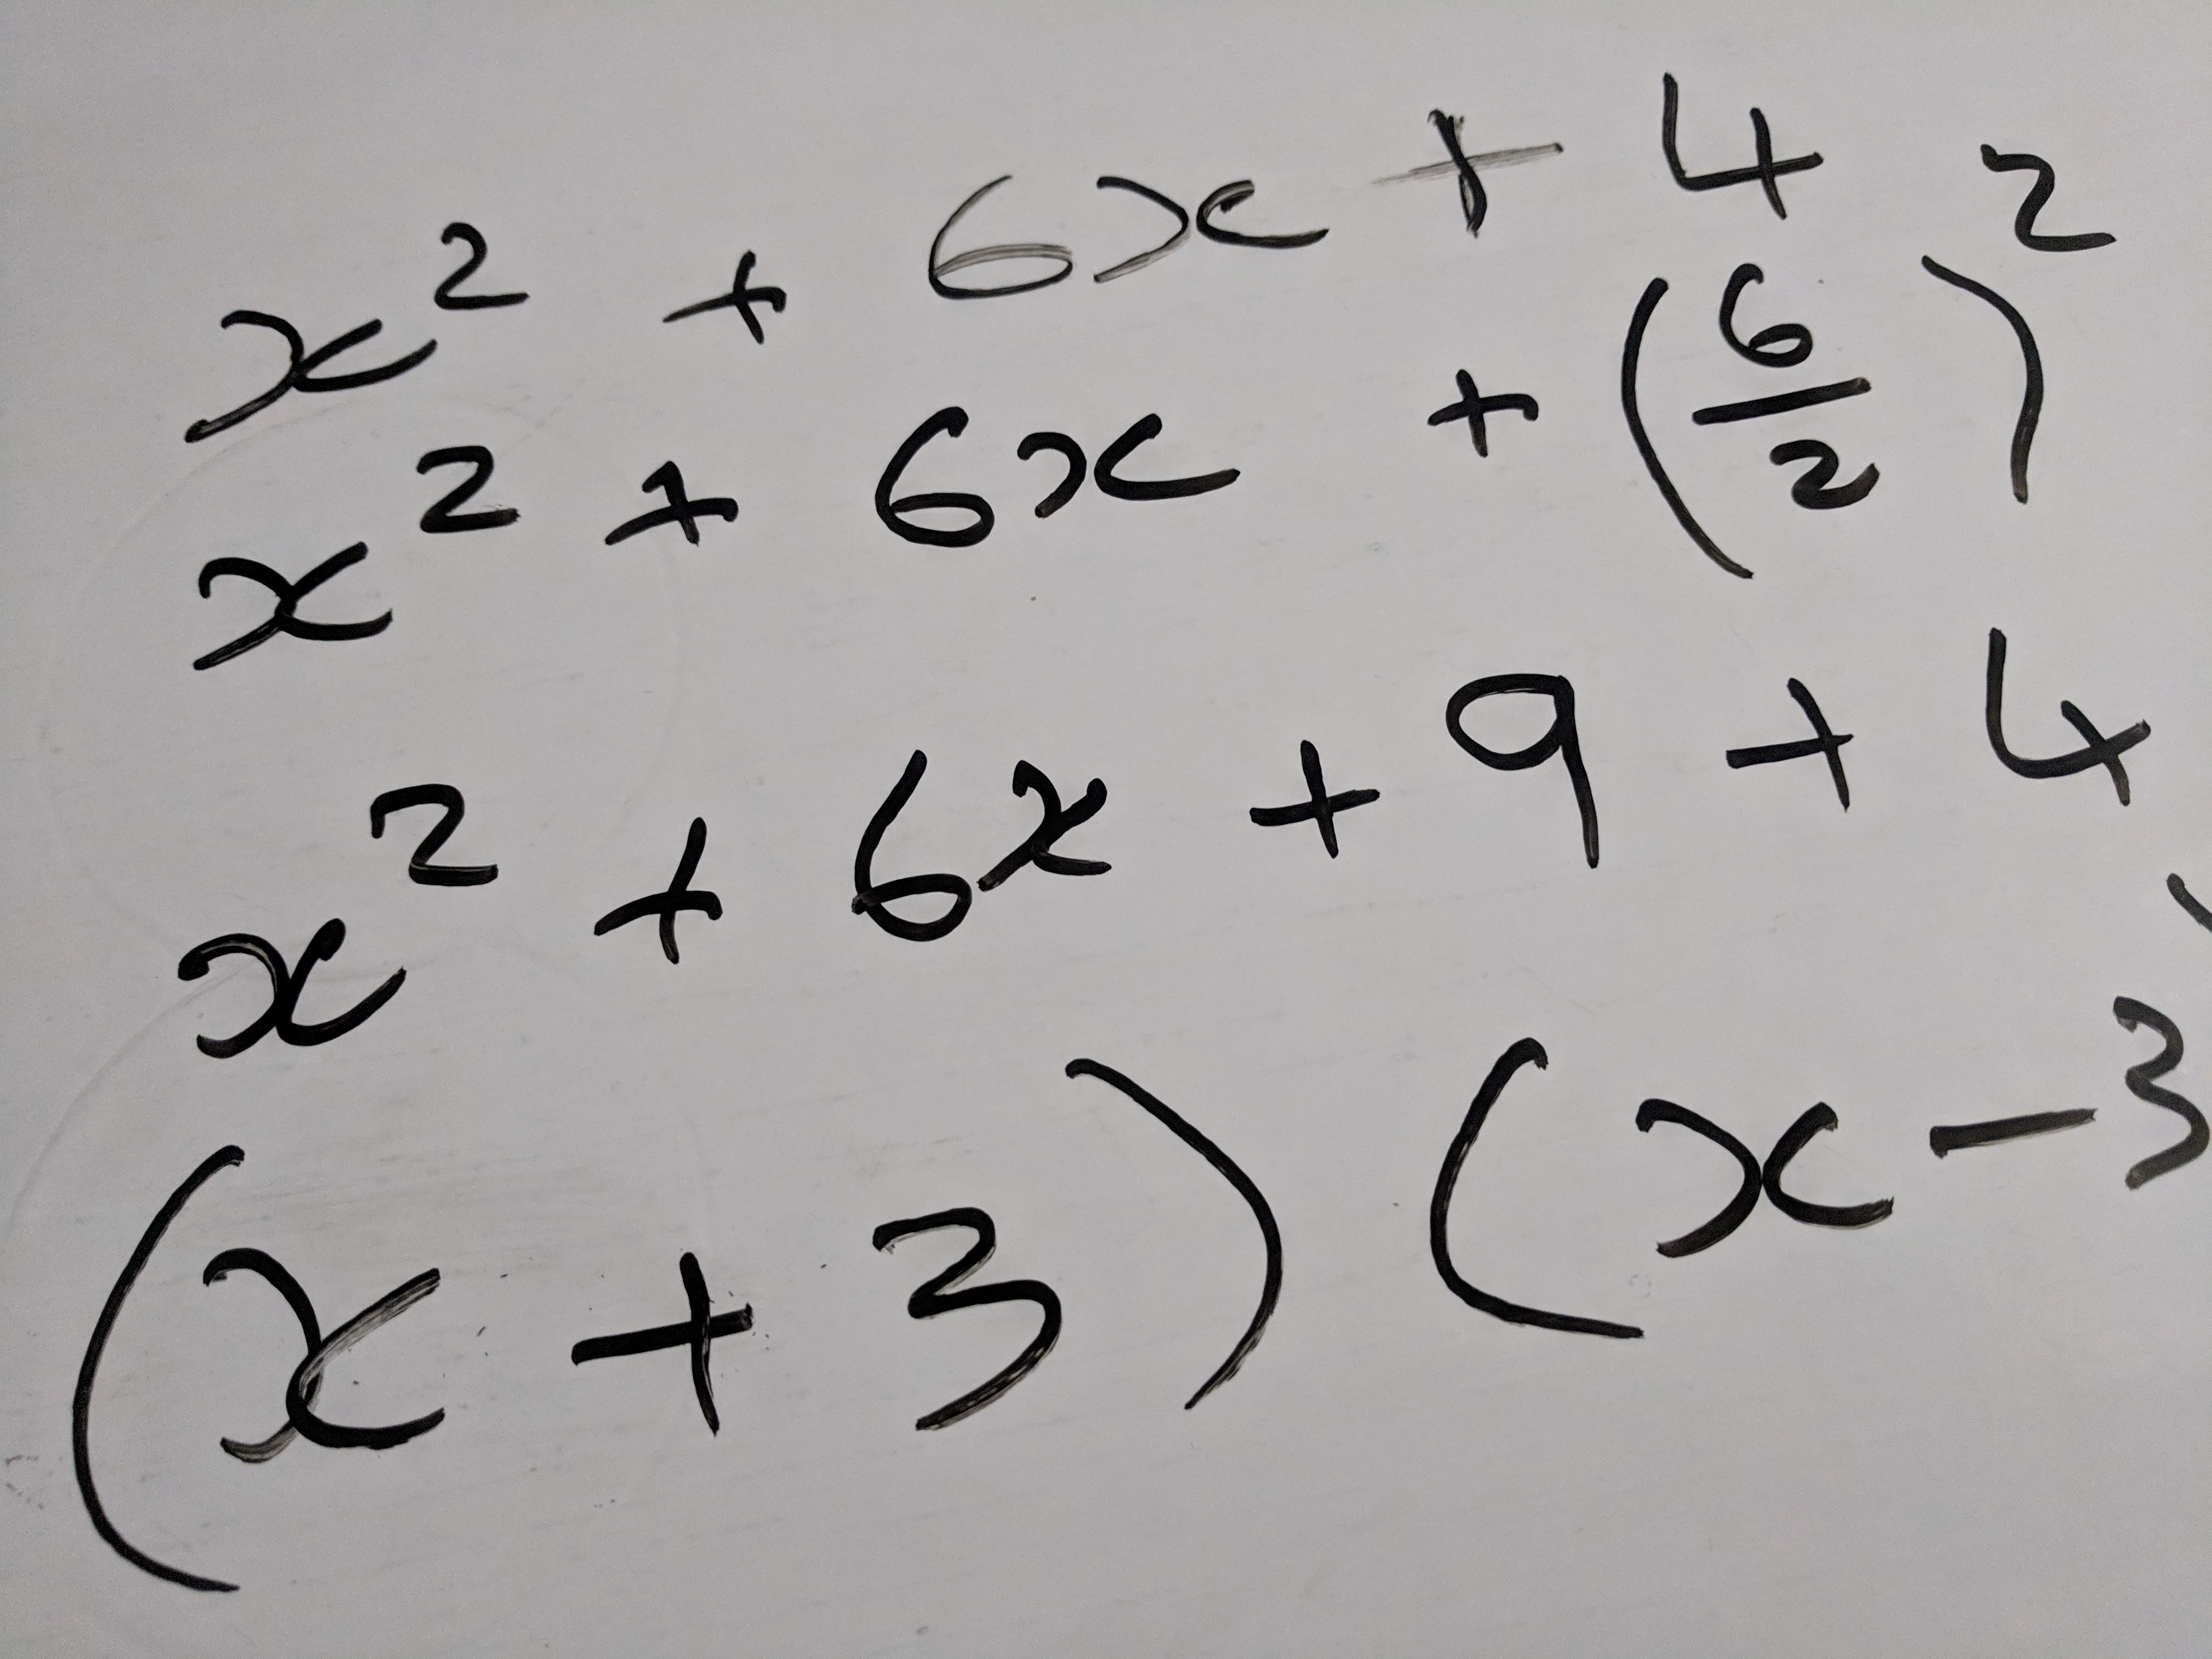 x² + 6x + 4
x² + 6x + (6/2)²
x² + 6x + 9 + 4
(x + 3) (x - 3